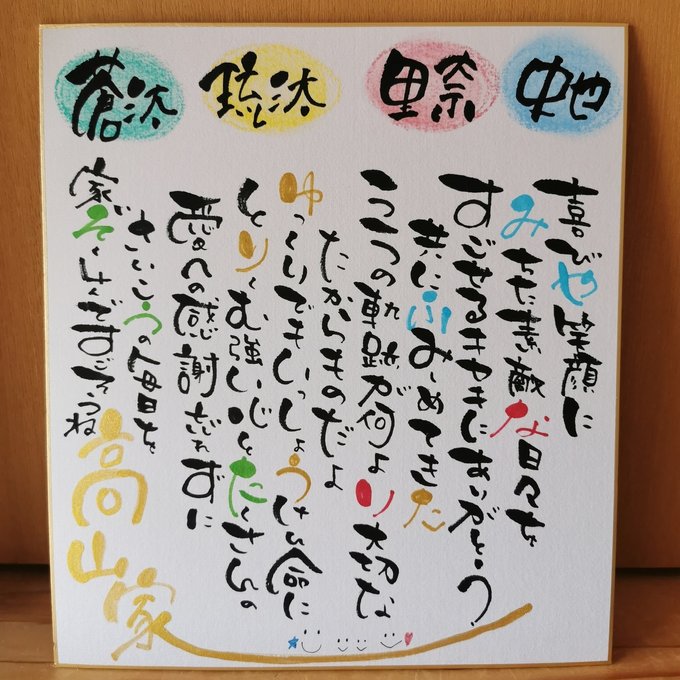 史也
里奈
琉汰
蒼汰
喜びや笑顔に
みちた素敵な日々を
すごせるキセキにありがとう
共にふみしめてきた
二つの軌跡が何より大切な
たからものだよ
ゆっくりでもいっしょうけん命に
とりくむ強い心とたくさんの
愛への感謝忘れずに
さいこうの毎日を
家ぞく4人ですごそうね
高山家